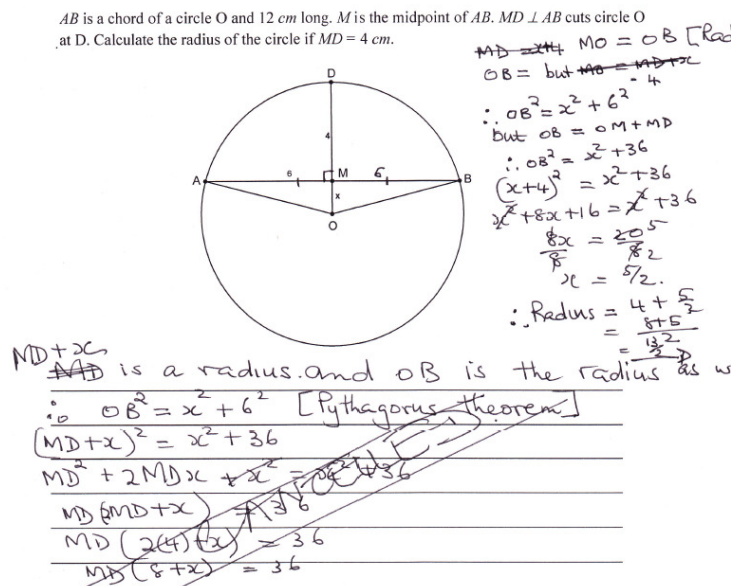 AB is a chord of a circle O and 12 cm long. M is the midpoint of AB. MD ⊥ AB cuts circle O
at D. Calculate the radius of the circle if MD = 4 cm.
MD = x+4 MO = OB [Rad
OB = but MO = MD+x
- 4
∴ OB² = x² + 6²
but OB = OM + MD
∴ OB² = x² + 36
(x+4)² = x² + 36
x² + 8x + 16 = x² + 36
8x/8 = 20 5/8 2
x = 5/2.
∴ Radius = 4 + 5/2
= 8+5/2
= 13/2
D
4
A 6 M 6 B
x
O
MD + x
MD is a radius. and OB is the radius as w
∴ OB² = x² + 6² [Pythagorus theorem]
(MD+x)² = x² + 36
MD² + 2MDx + x² = x² + 36
MD(2MD+x) = 36
MD(2(4)+x) = 36
MD(8+x) = 36
CANCELLED